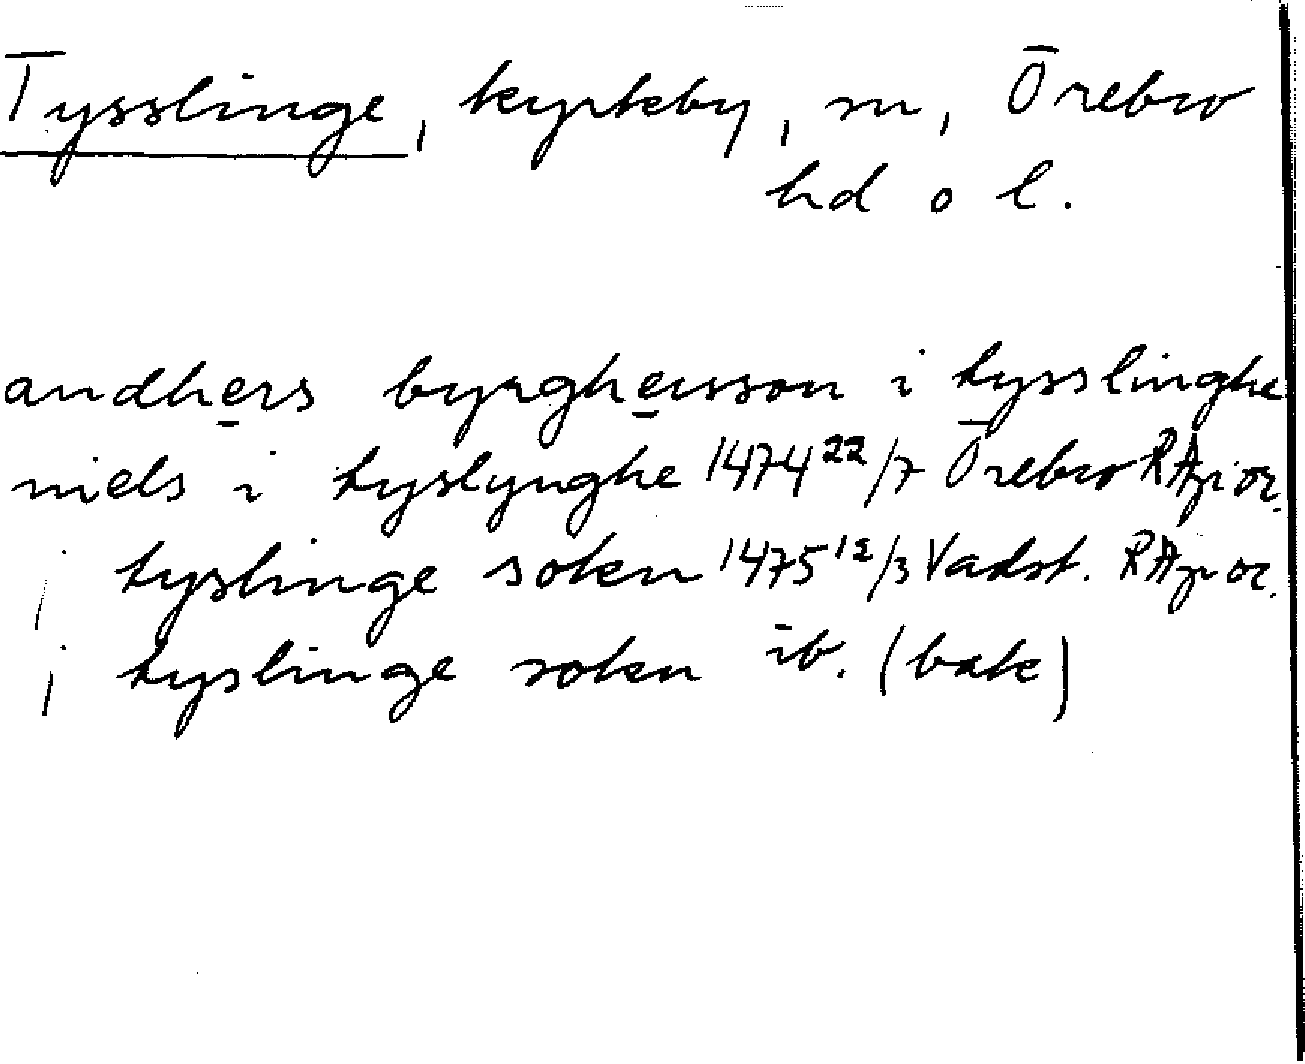 Tysslinge, kyrkby, sn, Örebro
hd o l.
andhers byrghersson i tysslinghe
niels i tyslynghe 1474 22/7 Örebro RApior.
j tyslinge sokn 1475 12/3 Vadst. RApior.
j tyslinge sokn ib. (bak)